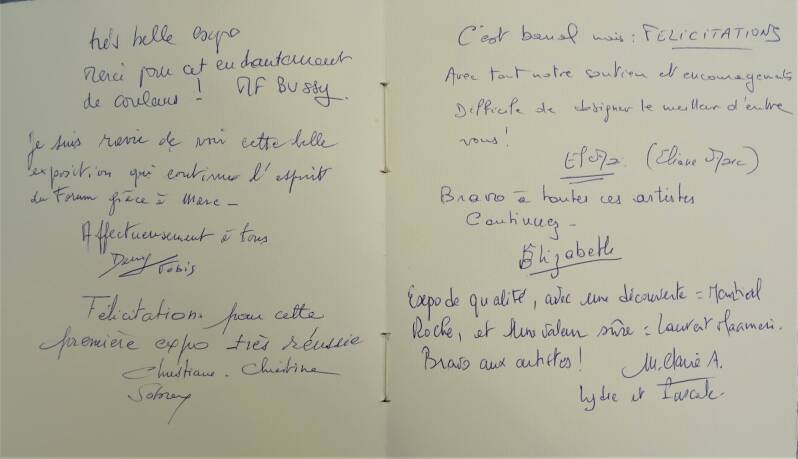 très belle expo
Merci pour cet enchantement
de couleurs ! MF BUSSY.
Je suis ravie de voir cette belle
exposition qui continue l'esprit
du Forum grâce à Marc –
Affectueusement à tous
Félicitations pour cette
première expo très réussie
Christiane - Christine
C'est banal mais : FELICITATIONS
Avec tout notre soutien et encouragements
Difficile de désigner le meilleur d'entre
vous !
(Eliane Marc)
Bravo à toutes ces artistes
Continuez –
Elizabeth
Expo de qualité, avec une découverte = Martial
Roche, et une valeur sûre = Laurent
Bravo aux artistes ! M. Claire A.
Lydie et Pascale.